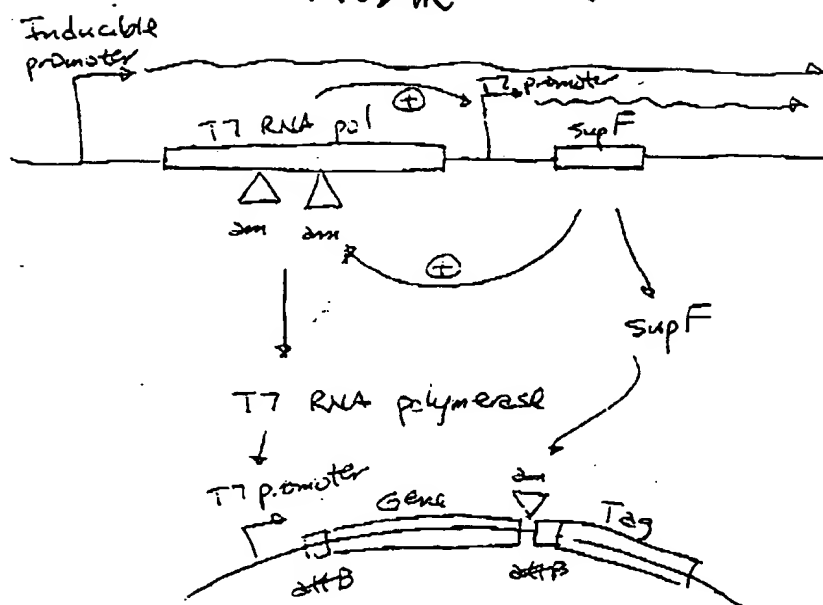 Inducible
promoter
T7 promoter
⊕
T7 RNA pol
supF
am am
⊕
supF
T7 RNA polymerase
T7 promoter
Gene
am
Tag
attB
attB